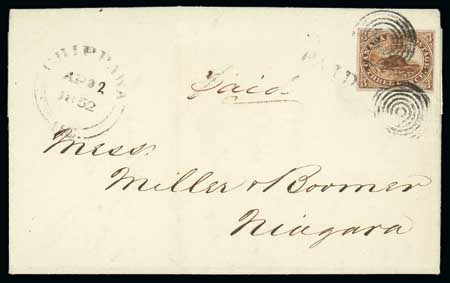 CHIPPAWA
AP 2
1852
Paid
PAID
CANADA POSTAGE
THREE PENCE
3
3
3
3
Mess:
Miller & Boomer
Niagara